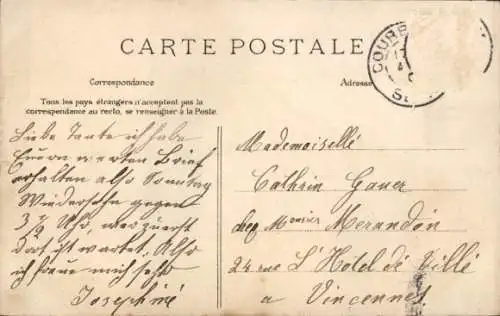 CARTE POSTALE
COURB
S
Correspondance
Adresse
Tous les pays étrangers n'acceptent pas la
correspondance au recto, se renseigner à la Poste.
Liebe Tante ich habe
Euern werten Brief
erhalten also Sonntag
Wiedersehn gegen
3½ Uhr, wer zuerst
dort ist wartet. Also
ich freue mich sehr
Josephiné
Mademoisellé
Cathrin Gauer
chez Monsier Merandon
24 rue L'Hôtel dé Villé
a Vincennes